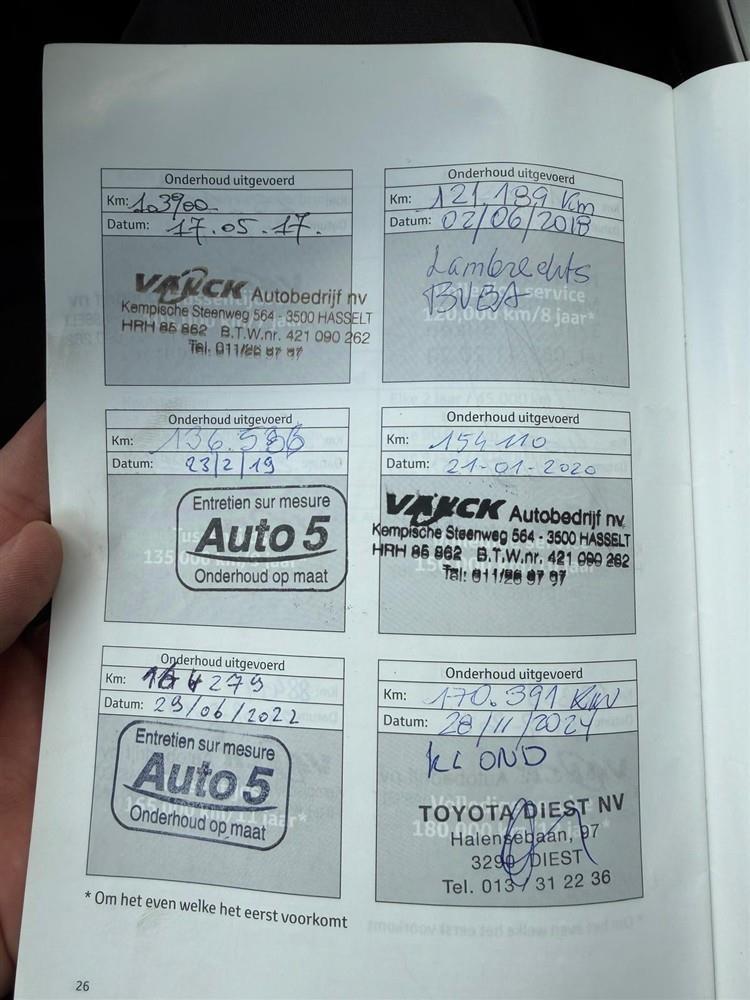 Onderhoud uitgevoerd
Km: 103900
Datum: 17.05.17.
VANCK Autobedrijf nv
Kempische Steenweg 564 - 3500 HASSELT
HRH 85 862 B.T.W.nr. 421 090 262
Tel. 011/26 97 97
Onderhoud uitgevoerd
Km: 121.189 Km
Datum: 02/06/2018
Lambrechts
BVBA
service
120,000 km/8 jaar*
Onderhoud uitgevoerd
Km: 136.536
Datum: 23/2/19
Entretien sur mesure
Auto 5
Onderhoud op maat
135
Onderhoud uitgevoerd
Km: 154110
Datum: 21-01-2020
VANCK Autobedrijf nv
Kempische Steenweg 564 - 3500 HASSELT
HRH 85 862 B.T.W.nr. 421 090 262
Tel: 011/26 97 97
Onderhoud uitgevoerd
Km: 164279
Datum: 29/06/2022
Entretien sur mesure
Auto 5
Onderhoud op maat
165.000 km/11 jaar*
Onderhoud uitgevoerd
Km: 170.391 KM
Datum: 28/11/2024
KL OND
TOYOTA DIEST NV
180,000 km/
Halensebaan, 97
3290 DIEST
Tel. 013 / 31 22 36
* Om het even welke het eerst voorkomt
26